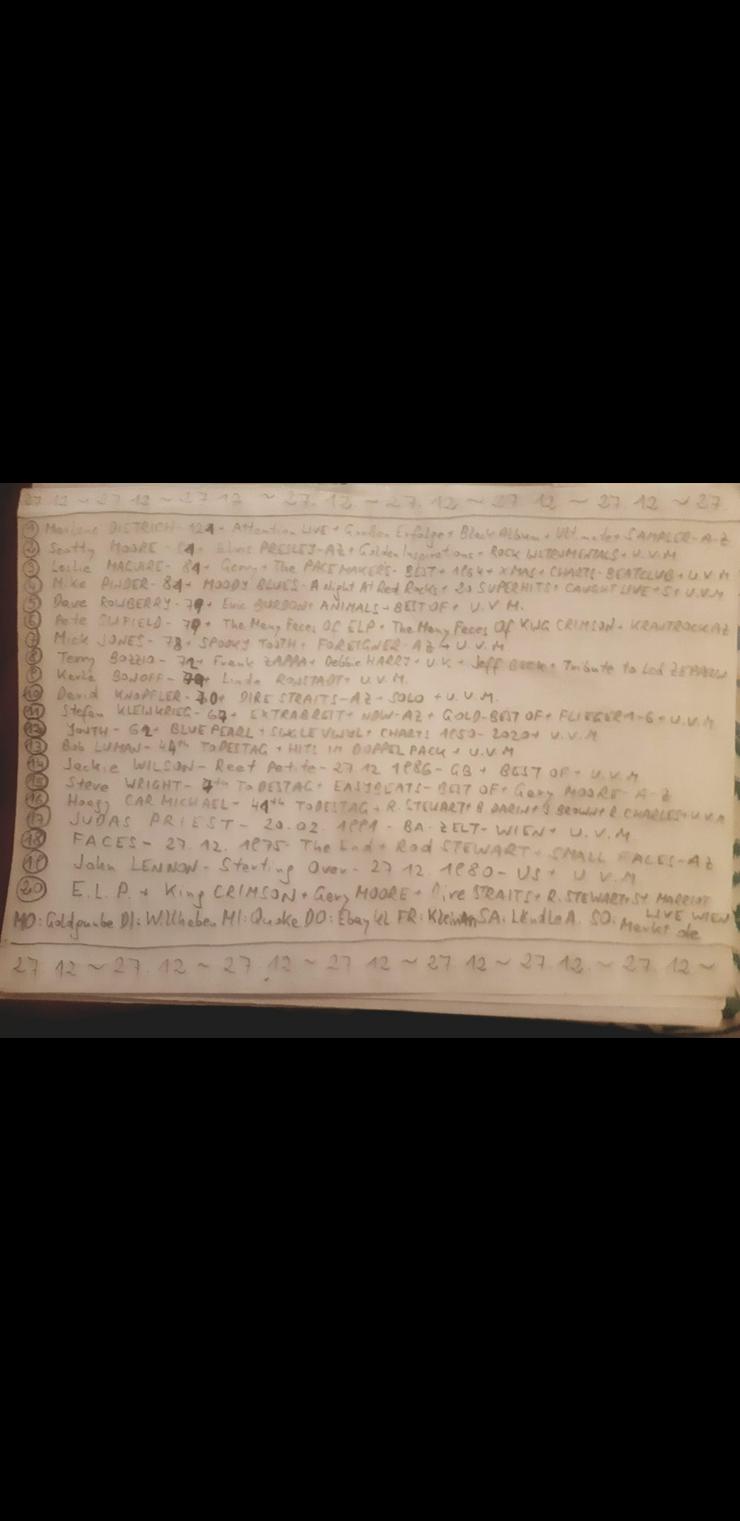 27.12 ~ 27.12 ~ 27.12 ~ 27.12 ~ 27.12 ~ 27.12 ~ 27.12 ~ 27
1 Marlene DIETRICH - 121 - Attention LIVE + Großen Erfolge + Black Album + Ultimates SAMPLER-A-Z
2 Scotty MOORE - Elvis PRESLEY-AZ + Golden Inspirations + ROCK INSTRUMENTALS + U.V.M
3 Leslie MAGUIRE - 81 + Gerry + The PACEMAKERS - BEST + 1964 + XMAS + CHARTS - BEATCLUB + U.V.M
4 Mike PINDER - 81 + MOODY BLUES - A Night At Red Rocks + 20 SUPERHITS + CAUGHT LIVE + 5 + U.V.M
5 Dave ROWBERRY - + Eric BURDON + ANIMALS + BEST OF + U.V.M.
6 Pete SINFIELD - + The Many Faces Of ELP + The Many Faces Of KING CRIMSON + KRAUTROCK AZ
7 Mick JONES - 78 + SPOOKY TOOTH + FOREIGNER - AZ + U.V.M
8 Terry BOZZIO - 71 + Frank ZAPPA + Debbie HARRY + U.K. + Jeff BECK + Tribute to Led ZEPPELIN
9 Karla BONOFF - + Linda RONSTADT + U.V.M.
10 David KNOPFLER - 70 + DIRE STRAITS - AZ + SOLO + U.V.M.
11 Stefan KLEINKRIEG - 67 + EXTRABREIT + NDW-AZ + GOLD-BEST OF + FLIEGER 1-6 + U.V.M
12 YOUTH - 61 + BLUE PEARL + SINGLE VINYL + CHARTS 1950-2020 + U.V.M
13 Bob LUMAN - 44th TODESTAG + HITS IM DOPPELPACK + U.V.M
14 Jackie WILSON - Reet Petite - 27.12.1986 - GB + BEST OF + U.V.M
15 Steve WRIGHT - 7th TODESTAG + EASYBEATS - BEST OF + Gary MOORE - A-Z
16 Hoagy CARMICHAEL - 41th TODESTAG + R. STEWART + B. DARIN + J. BROWN + R. CHARLES + U.V.M
17 JUDAS PRIEST - 20.02.1991 - BA-ZELT - WIEN + U.V.M.
18 FACES - 27.12.1975 - The End + Rod STEWART + SMALL FACES - AZ
19 John LENNON - Starting Over - 27.12.1980 - US + U.V.M
20 E.L.P. + King CRIMSON + Gary MOORE + Dire STRAITS + R. STEWART + ST MARRIOT LIVE WIEN
MO: Goldgrube DI: Willhaben MI: Quoke DO: Ebay kl FR: KleinAn SA: LändleA. SO: Markt.de
27.12 ~ 27.12 ~ 27.12 ~ 27.12 ~ 27.12 ~ 27.12 ~ 27.12 ~